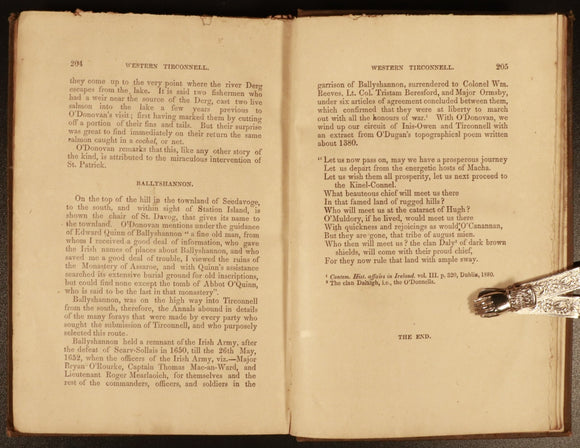 204 WESTERN TIRCONNELL.
they come up to the very point where the river Derg
escapes from the lake. It is said two fishermen who
had a weir near the source of the Derg, cast two live
salmon into the lake a few years previous to
O'Donovan's visit; first having marked them by cutting
off a portion of their fins and tails. But their surprise
was great to find immediately on their return the same
salmon caught in a cochol, or net.
O'Donovan remarks that this, like any other story of
the kind, is attributed to the miraculous intervention of
St. Patrick.
BALLYSHANNON.
On the top of the hill in the townland of Seedavoge,
to the south, and within sight of Station Island, is
shown the chair of St. Davog, that gives its name to
the townland. O'Donovan mentions under the guidance
of Edward Quinn of Ballyshannon "a fine old man, from
whom I received a good deal of information, who gave
the Irish names of places about Ballyshannon, and who
saved me a good deal of trouble, I viewed the ruins of
the Monastery of Assaroe, and with Quinn's assistance
searched its extensive burial ground for old inscriptions,
but could find none except the tomb of Abbot O'Quinn,
who is said to be the last in that monastery".
Ballyshannon, was on the high way into Tirconnell
from the south, therefore, the Annals abound in details
of the many forays that were made by every party who
sought the submission of Tirconnell, and who purposely
selected this route.
Ballyshannon held a remnant of the Irish Army, after
the defeat of Scarv-Sollais in 1650, till the 26th May,
1652, when the officers of the Irish Army, viz.—Major
Bryan O'Rourke, Captain Thomas Mac-an-Ward, and
Lieutenant Roger Mearlaoich, for themselves and the
rest of the commanders, officers, and soldiers in the
WESTERN TIRCONNELL. 205
garrison of Ballyshannon, surrendered to Colonel Wm.
Reeves, Lt. Col. Tristam Beresford, and Major Ormsby,
under six articles of agreement concluded between them,
which confirmed that they were at liberty to march
out with all the honours of war.¹ With O'Donovan, we
wind up our circuit of Inis-Owen and Tirconnell with
an extract from O'Dugan's topographical poem written
about 1380.
"Let us now pass on, may we have a prosperous journey
Let us depart from the energetic hosts of Macha.
Let us wish them all prosperity, let us next proceed to
the Kinel-Connel.
What beauteous chief will meet us there
In that famed land of rugged hills?
Who will meet us at the cataract of Hugh?
O'Muldory, if he lived, would meet us there
With quickness and rejoicings as would O'Canannan,
But they are gone, that tribe of august mien.
Who then will meet us? the clan Daly² of dark brown
shields, will come with their proud chief,
For they now rule that land with ample sway.
¹ Contem. Hist. affairs in Ireland. vol. III. p, 320, Dublin, 1880.
² The clan Dalaigh, i.e., the O'Donnells.
THE END.